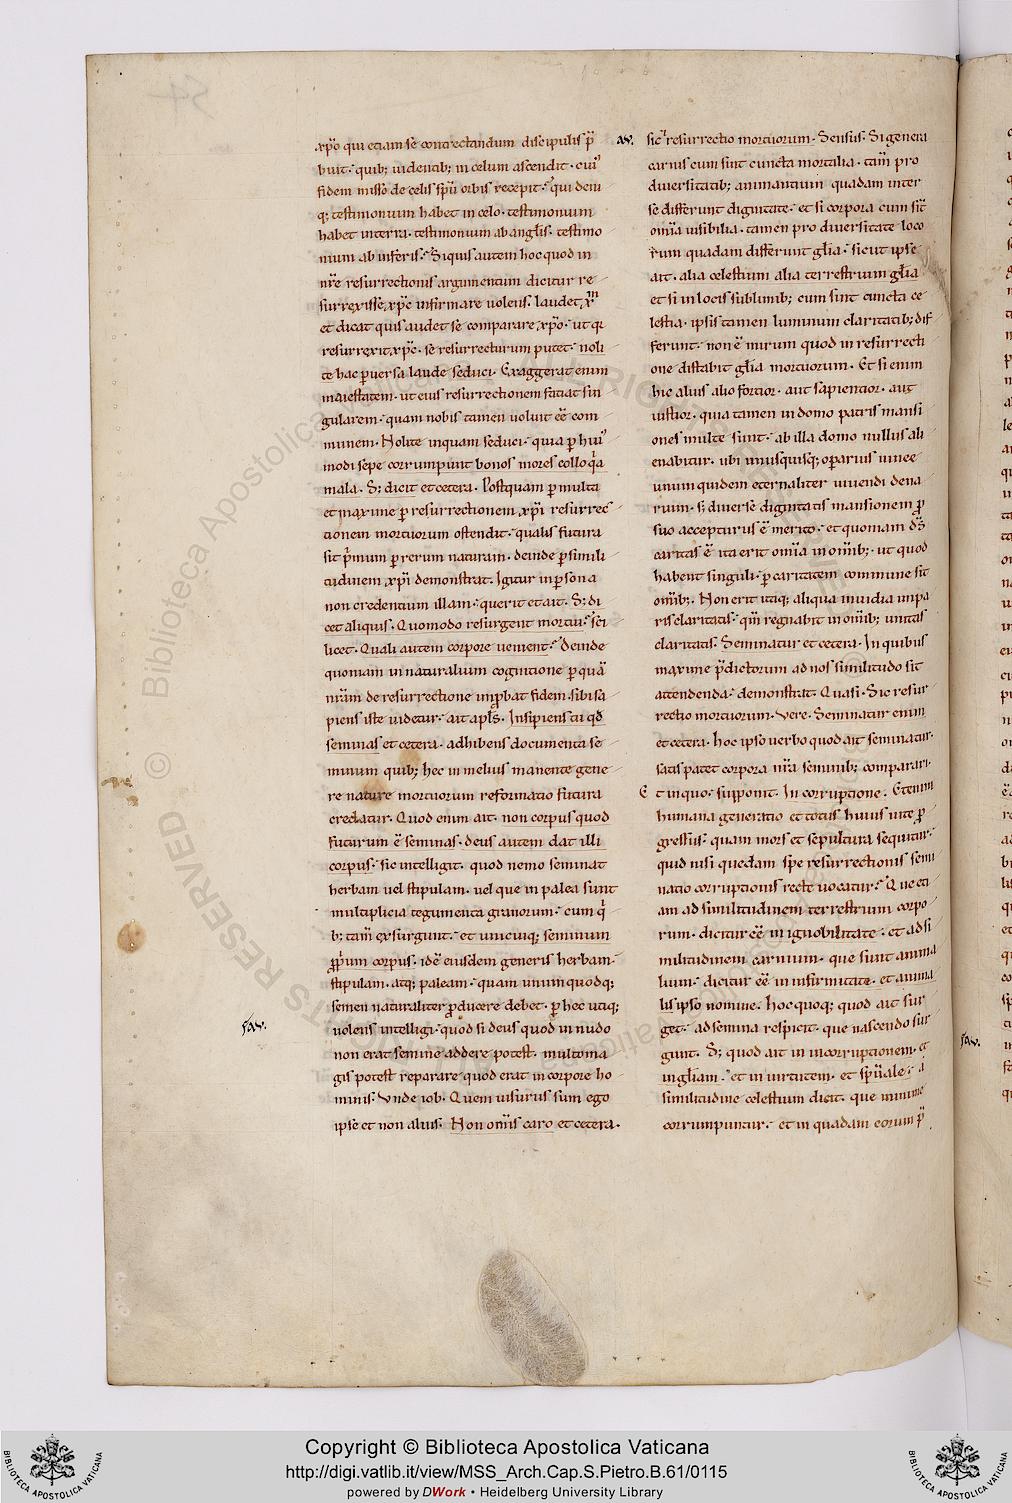 xp̄o qui etiam se contrectandum discipulis p̄
buit· quib; uidentib; in celum ascendit· cui᾽
fidem misso de celis sp̄u orbis recepit· qui deni
q; testimonium habet in celo· testimonium
habet in terra· testimonium ab angl̄is· testimo
nium ab inferis· Siquis autem hoc quod in
nr̄e resurrectionis argumentum dicitur re
surrexisse xp̄c infirmare uolens· laudet xp̄m
et dicat quis audet se comparare xp̄o· ut qa
resurrexit xp̄c· se resurrecturum putet· noli
te hac peruersa laude seduci· Exaggerat enim
maiestatem· ut eius resurrectionem faciat sin
gularem· quam nobis tamen uoluit eē᷎ com
munem· Nolite inquam seduci· quia p hui᾽
modi sepe corrumpunt bonos mores colloq̇a
mala· S; dicit et cetera· Postquam p multa
et maxime p resurrectionem xp̄i resurrec
tionem mortuorum ostendit· qualis futura
sit p̓mum p rerum naturam· deinde p simili
tudinem xp̄i demonstrat· Igitur in psona
non credentium illam· querit et ait· S; di
cet aliquis· Quomodo resurgent mortui· sci
licet· Quali autem corpore uenient· Deinde
quoniam in naturalium cognitione p quā
nām de resurrectione inpbat fidem· sibi sa
piens iste uidetur· ait apl̄s· Insipiens tu qd̄
seminas et cetera· adhibens documenta se
minum quib; hec in melius manente gene
re nature mortuorum reformatio futura
credatur· Quod enim ait· non corpus quod
futurum ē seminas· deus autem dat illi
corpus· sic intelligit· quod nemo seminat
herbam uel stipulam· uel que in palea sunt
multiplicia tegumenta granorum· cum q̇
b; tam̄ exsurgunt· et unicuiq; seminum
pp̓um corpus· idē eiusdem generis herbam·
stipulam· atq; paleam· quam unumquodq;
semen naturaliter pducere debet· p hec utiq;
uolens intelligi· quod si deus quod in nudo
non erat semine addere potest· multo ma
gis potest reparare quod erat in corpore ho
minis· Vnde iob· Quem uisurus sum ego
ipse et non alius· Non om̄is caro et cetera·
aɢ·
sic᾽ resurrectio mortuorum· Sensus· Si genera
carnis cum sint cuncta mortalia· tam̄ pro
diuersitatib; animantium quadam inter
se differunt dignitate· et si corpora cum sīt
om̄ia uisibilia· tamen pro diuersitate loco
rum quadam differunt gl̄ia· sicut ipse
ait· alia celestium alia terrestrium gl̄ia
et si in locis sublimib; cum sint cuncta ce
lestia· ipsis tamen luminum claritatib; dif
ferunt· non ē mirum quod in resurrecti
one distabit gl̄ia mortuorum· Et si enim
hic alius alio fortior· aut sapientior· aut
iustior· quia tamen in domo patris mansi
ones multe sunt· ab illa domo nullus ali
enabitur· ubi unusquisq; operarius uinee
unum quidem eternaliter uiuendi dena
rium· s; diuerse dignitatis mansionem p
suo accepturus ē merito· et quoniam d̄s
caritas ē ita erit om̄ia in om̄ib;· ut quod
habent singuli· p caritatem commune sit
om̄ib;· Non erit itaq; aliqua inuidia inpa
ris claritatis· qm̄ regnabit in om̄ib; unitas
claritatis· Seminatur et cetera· In quibus
maxime p̄dictorum ad nos similitudo sit
attendenda· demonstrat· Quasi· Sic resur
rectio mortuorum· Vere· Seminatur enim
et cetera· hoc ipso uerbo quod ait seminatur·
satis patet corpora nr̄a seminib; comparari·
Et in quo· supponit· In corruptione· Etenim
humana generatio et totus huius uite p
gressus· quam mors et sepultura sequitur·
quid nisi quedam spe resurrectionis semi
natio corruptionis recte uocatur· Que eti
am ad similitudinem terrestrium corpo
rum· dicitur eē in ignobilitate· et ad si
militudinem carnium· que sunt anima
lium· dicitur eē in infirmitate· et anima
lis ipso nomine· hoc quoq; quod ait sur
get· ad semina respicit· que nascendo sur
gunt· S; quod ait in incorruptionem· et
in gl̄iam· et in uirtutem· et sp̄uale· a
similitudine celestium dicit· que minime
corrumpuntur· et in quadam eorum p̄
Copyright © Biblioteca Apostolica Vaticana
http://digi.vatlib.it/view/MSS_Arch.Cap.S.Pietro.B.61/0115
powered by DWork • Heidelberg University Library
BIBLIOTECA APOSTOLICA VATICANA
BIBLIOTECA APOSTOLICA VATICANA
© Biblioteca Apostolica Vaticana ALL RIGHTS RESERVED